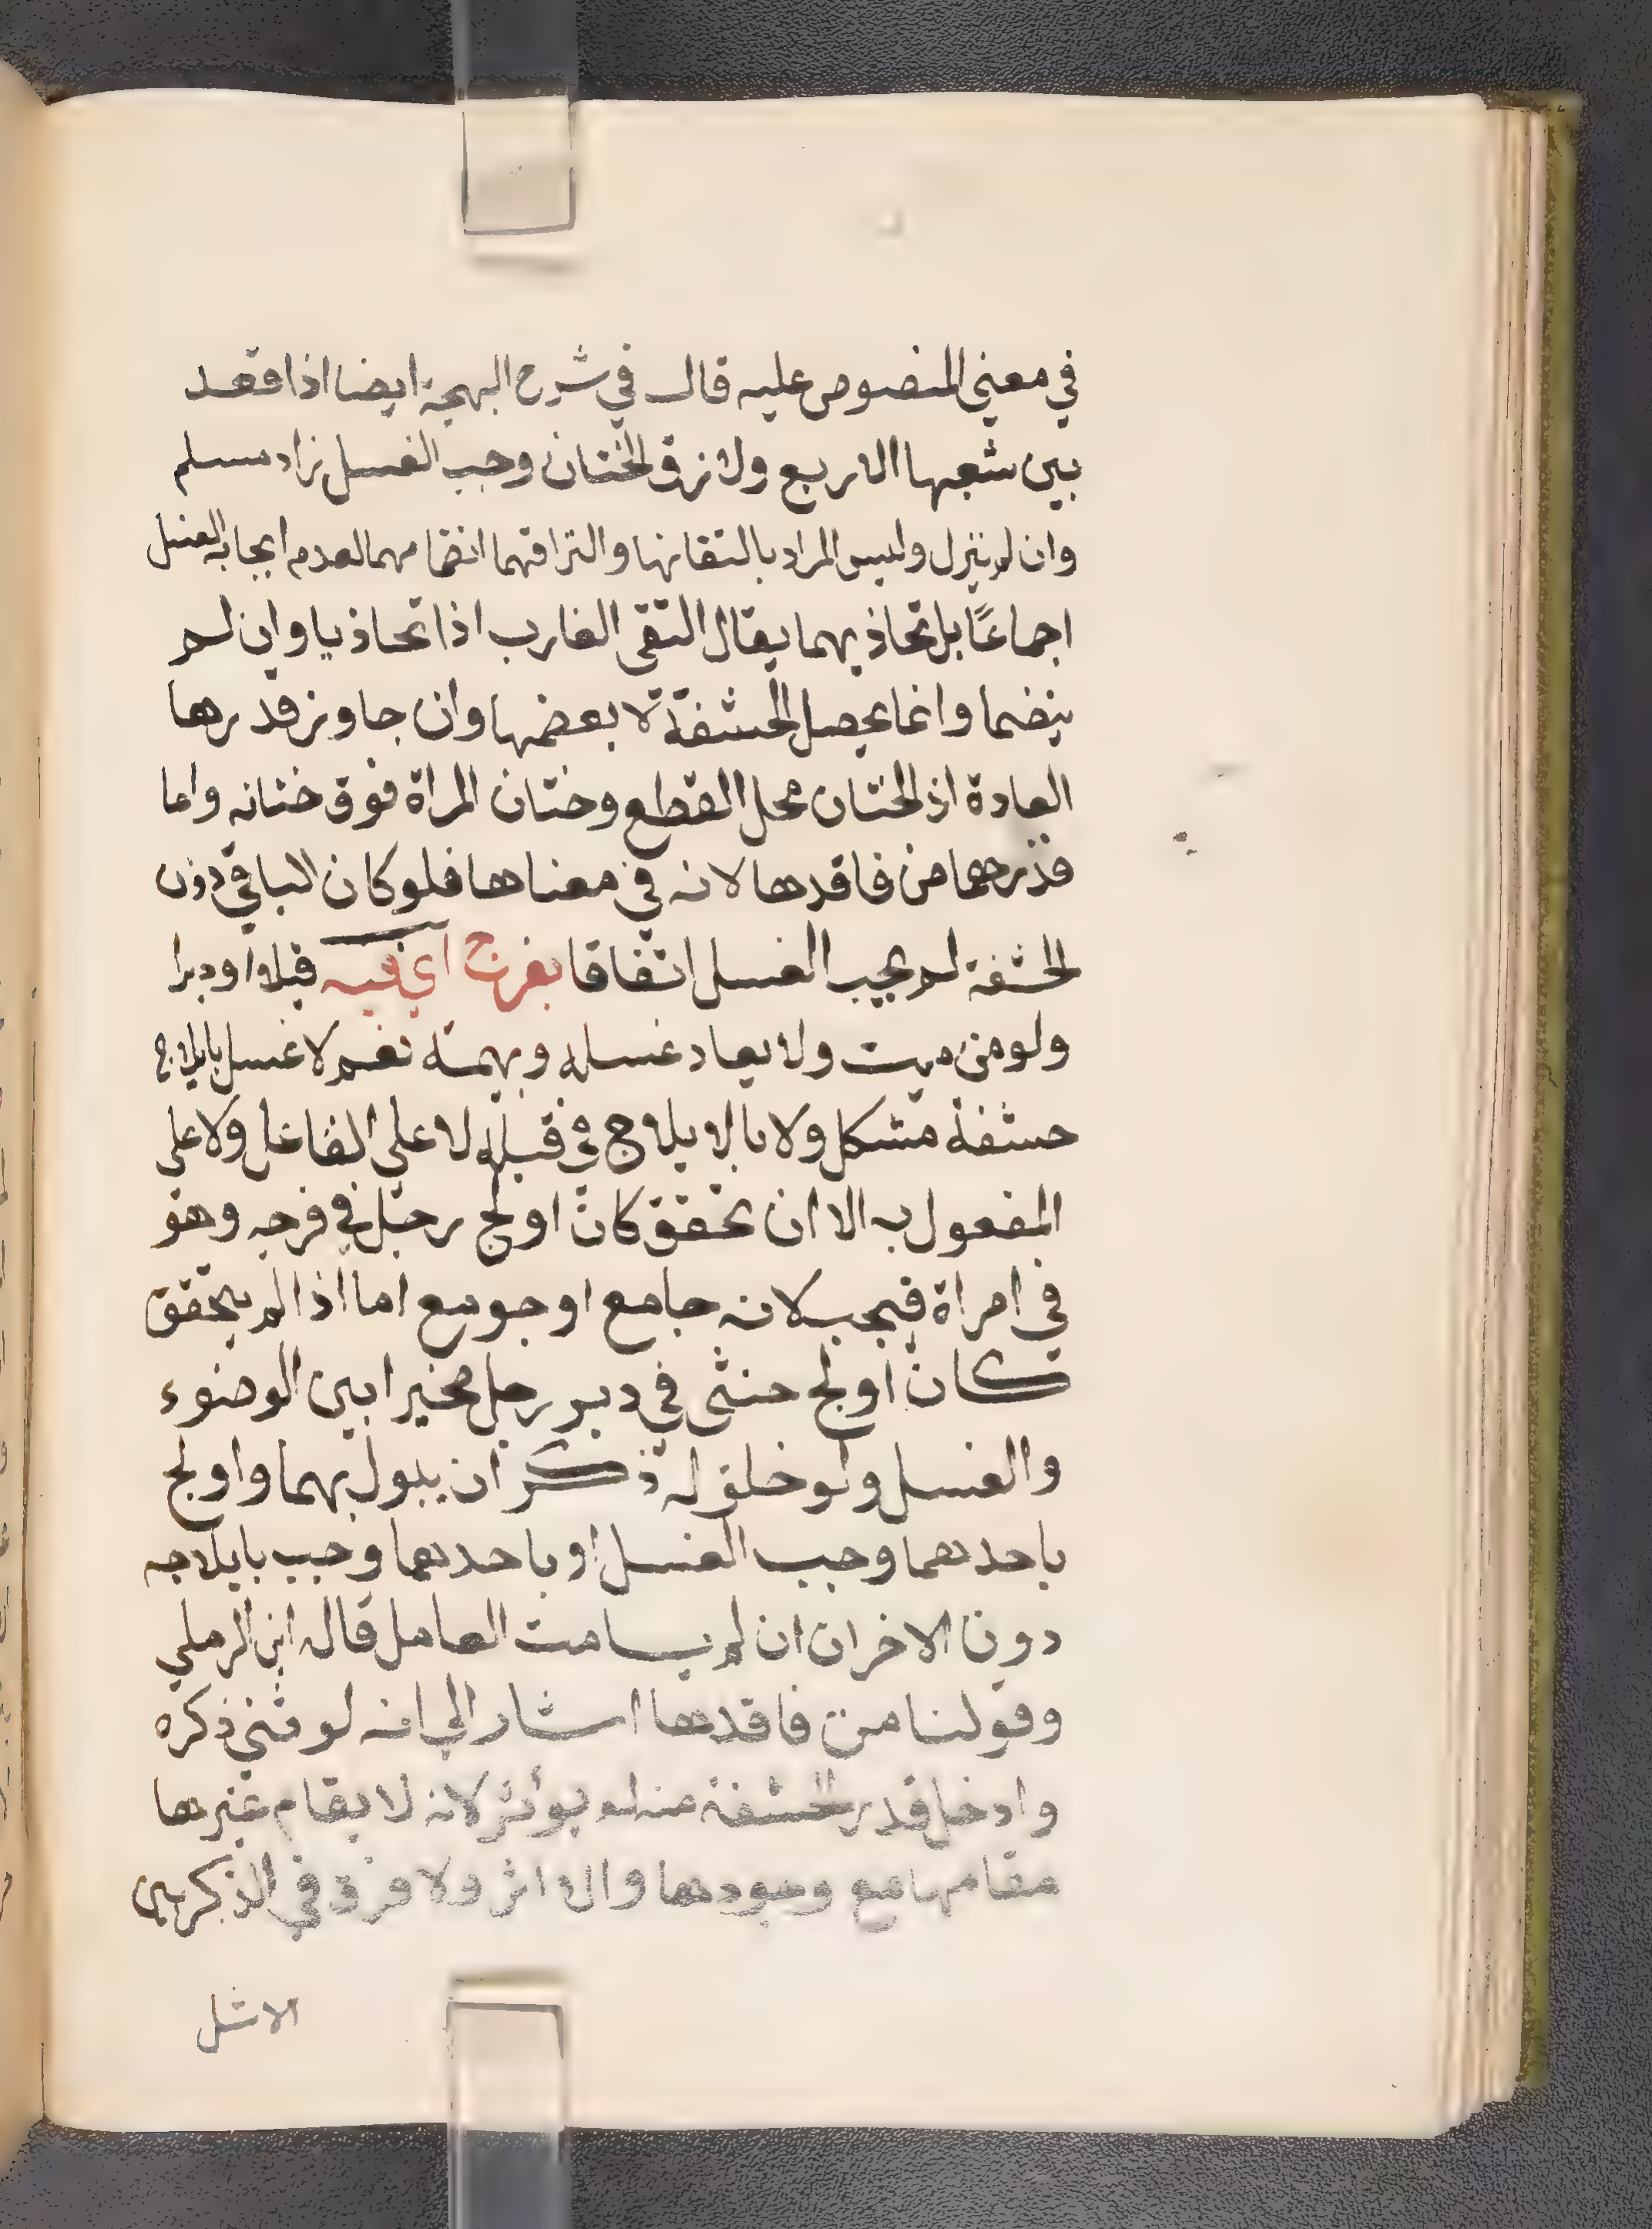 في معني المنصوص عليه قال في شرح البهجة ايضا اذا قعد
بين شعبها الاربع ولازق الختان وجب الغسل زاد مسلم
وان لم ينزل وليس المراد بالتقائهما والتزاقهما انضمامهما لعدم ايجابه الغسل
اجماعًا بل تحاذيهما يقال التقي الفارب اذا تحاذيا وان لم
ينضما وانما يحصل الحشفة لا بعضها وان جاوز قدرها
العادة اذ الختان محل القطع وختان المراة فوق ختانه واما
قدرهما من فاقدها لانه في معناها فلو كان الباقي دون
الحشفة لم يجب الغسل اتفاقا بفرج اي فيه قبلا او دبرا
ولو من ميت ولا يعاد غسله وبهيمة نعم لا غسل بايلاج
حشفة مشكل ولا بالايلاج في قبله لا علي الفاعل ولا علي
المفعول به الا ان تحقق كان اولج رجل في فرجه وهو
في امراة فيجب لانه جامع او جومع اما اذا لم يتحقق
كان اولج خنثي في دبر رجل مخيرا بين الوضوء
والغسل ولو خلق له ذكر ان يبول بهما واولج
باحدهما وجب الغسل او باحدهما وجب بايلاجه
دون الاخر ان ان لم يسامت العامل قاله ابن الرملي
وقولنا من فاقدها اشار الي انه لو ثني ذكره
وادخل قدر الحشفة منه لم يوثر لانه لا يقام غيرها
مقامها مع وجودها والا اثر ولا فرق في الذكر بين
الاشل